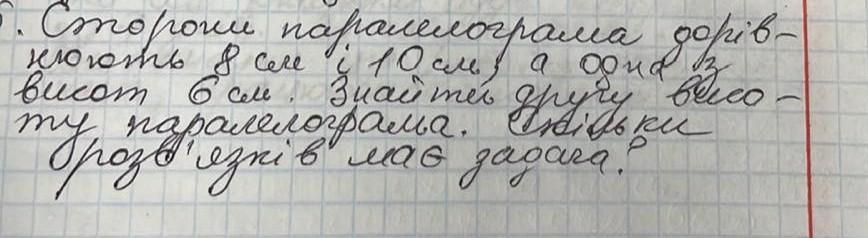 . Сторони паралелограма дорів-
нюють 8 см і 10 см, а одна з
висот 6 см. Знайти другу висо-
ту паралелограма. Скільки
розв'язків має задача?